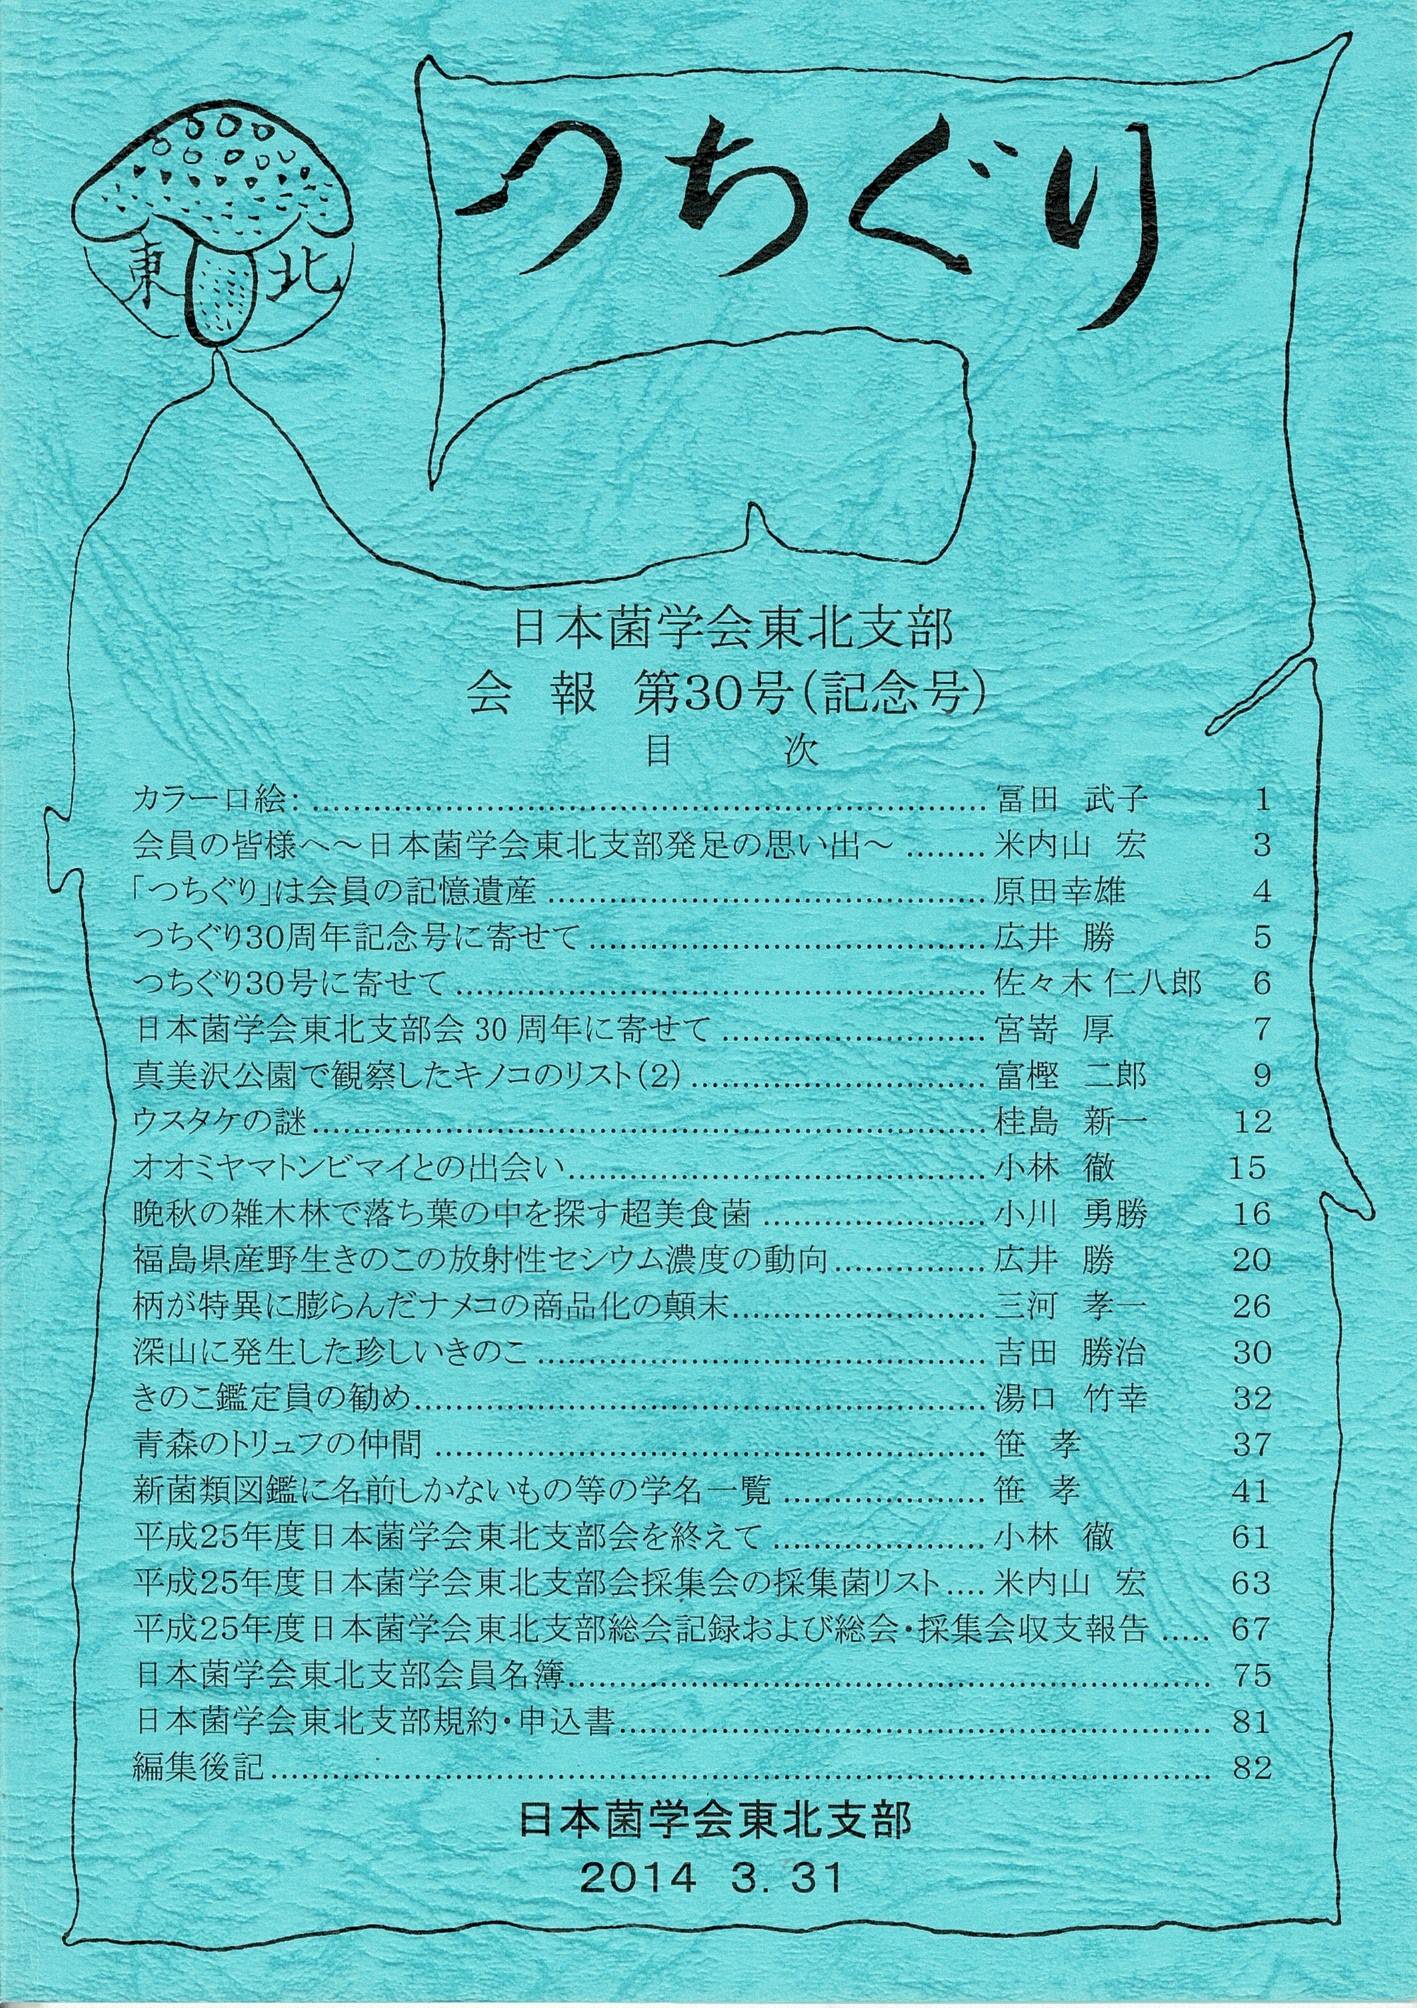 つちぐり
東北
日本菌学会東北支部
会 報 第30号(記念号)
目 次
カラー口絵: ........ 冨田 武子 1
会員の皆様へ～日本菌学会東北支部発足の思い出～ ........ 米内山 宏 3
「つちぐり」は会員の記憶遺産 ........ 原田幸雄 4
つちぐり30周年記念号に寄せて ........ 広井 勝 5
つちぐり30号に寄せて ........ 佐々木 仁八郎 6
日本菌学会東北支部会 30 周年に寄せて ........ 宮嵜 厚 7
真美沢公園で観察したキノコのリスト(2) ........ 富樫 二郎 9
ウスタケの謎 ........ 桂島 新一 12
オオミヤマトンビマイとの出会い ........ 小林 徹 15
晩秋の雑木林で落ち葉の中を探す超美食菌 ........ 小川 勇勝 16
福島県産野生きのこの放射性セシウム濃度の動向 ........ 広井 勝 20
柄が特異に膨らんだナメコの商品化の顛末 ........ 三河 孝一 26
深山に発生した珍しいきのこ ........ 吉田 勝治 30
きのこ鑑定員の勧め ........ 湯口 竹幸 32
青森のトリュフの仲間 ........ 笹 孝 37
新菌類図鑑に名前しかないもの等の学名一覧 ........ 笹 孝 41
平成25年度日本菌学会東北支部会を終えて ........ 小林 徹 61
平成25年度日本菌学会東北支部会採集会の採集菌リスト .... 米内山 宏 63
平成25年度日本菌学会東北支部総会記録および総会・採集会収支報告 ..... 67
日本菌学会東北支部会員名簿 ........ 75
日本菌学会東北支部規約・申込書 ........ 81
編集後記 ........ 82
日本菌学会東北支部
2014 3. 31